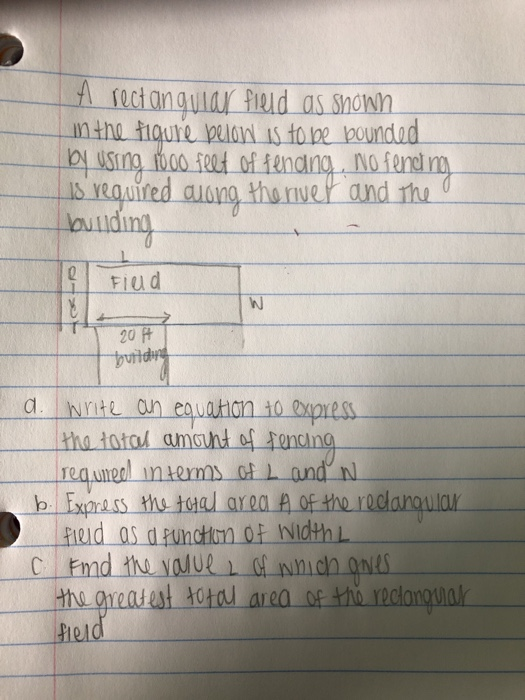 A rectangular field as shown
in the figure below is to be bounded
by using 1000 feet of fencing. No fencing
is required along the river and the
building
L
River
Field
W
20 ft
building
a. Write an equation to express
the total amount of fencing
required in terms of L and W
b. Express the total area A of the rectangular
field as a function of width L
c Find the value L of which gives
the greatest total area of the rectangular
field